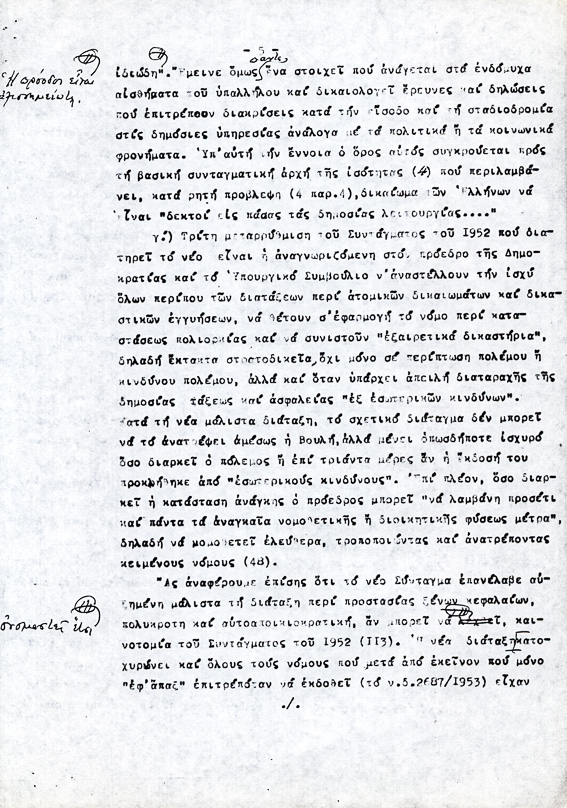 - 5 -
ἰδεώδη". Ἔμεινε ὅμως ἕνα στοιχεῖ πού ἀνάγεται στά ἐνδόμυχα
αἰσθήματα τοῦ ὑπαλλήλου καί δικαιολογεῖ ἔρευνες καί δηλώσεις
πού ἐπιτρέπουν διακρίσεις κατά τήν εἴσοδο καί τή σταδιοδρομία
στίς δημόσιες ὑπηρεσίας ἀνάλογα μέ τά πολιτικά ἤ τά κοινωνικά
φρονήματα. Ὑπ'αὐτή τήν ἔννοια ὁ ὅρος αὐτός συγκρούεται πρός
τή βασική συνταγματική ἀρχή τῆς ἰσότητας (4) πού περιλαμβά-
νει, κατά ρητή πρόβλεψη (4 παρ.4), δικαίωμα τῶν Ἑλλήνων νά
εἶναι "δεκτοί εἰς πάσας τάς δημοσίας λειτουργίας...."
γ.) Τρίτη μεταρρύθμιση τοῦ Συντάγματος τοῦ 1952 πού δια-
τηρεῖ τό νέο εἶναι ἡ ἀναγνωριζόμενη στόν πρόεδρο τῆς Δημο-
κρατίας καί τό Ὑπουργικό Συμβούλιο ν'ἀναστέλλουν τήν ἰσχύ
ὅλων περίπου τῶν διατάξεων περί ἀτομικῶν δικαιωμάτων καί δικα-
στικῶν ἐγγυήσεων, νά θέτουν σ'ἐφαρμογή τό νόμο περί κατα-
στάσεως πολιορκίας καί νά συνιστοῦν "ἐξαιρετικά δικαστήρια",
δηλαδή ἔκτακτα στρατοδικεῖα, ὄχι μόνο σέ περίπτωση πολέμου ἤ
κινδύνου πολέμου, ἀλλά καί ὅταν ὑπάρχει ἀπειλή διαταραχῆς τῆς
δημοσίας τάξεως καί ἀσφαλείας "ἐξ ἐσωτερικῶν κινδύνων".
Κατά τή νέα μάλιστα διάταξη, τό σχετικό διάταγμα δέν μπορεῖ
νά τό ἀνατρέψει ἀμέσως ἡ Βουλή, ἀλλά μένει ὁπωσδήποτε ἰσχυρό
ὅσο διαρκεῖ ὁ πόλεμος ἤ ἐπί τριάντα μέρες ἄν ἡ ἔκδοσή του
προκλήθηκε ἀπό "ἐσωτερικούς κινδύνους". Ἐπί πλέον, ὅσο διαρ-
κεῖ ἡ κατάσταση ἀνάγκης ὁ πρόεδρος μπορεῖ "νά λαμβάνη προσέτι
καί πάντα τά ἀναγκαῖα νομοθετικῆς ἤ διοικητικῆς φύσεως μέτρα",
δηλαδή νά νομοθετεῖ ἐλεύθερα, τροποποιώντας καί ἀνατρέποντας
κειμένους νόμους (48).
Ἄς ἀναφέρουμε ἐπίσης ὅτι τό νέο Σύνταγμα ἐπανέλαβε αὐ-
ξημένη μάλιστα τή διάταξη περί προστασίας ξένων κεφαλαίων,
πολύκροτη καί αὐτοαποικιοκρατική, ἄν μπορεῖ νά, και-
νοτομία τοῦ Συντάγματος τοῦ 1952 (II3). Ἡ νέα διάταξη κατο-
χυρώνει καί ὅλους τούς νόμους πού μετά ἀπό ἐκεῖνον πού μόνο
"ἐφ'ἅπαξ" ἐπιτρέπόταν νά ἐκδοθεῖ (τό ν.δ.2687/1953) εἶχαν
./.